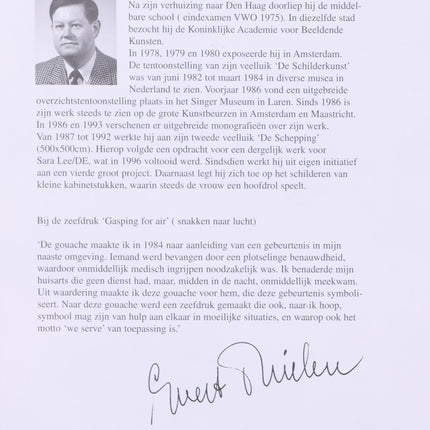 Na zijn verhuizing naar Den Haag doorliep hij de middel-
bare school ( eindexamen VWO 1975). In diezelfde stad
bezocht hij de Koninklijke Academie voor Beeldende
Kunsten.
In 1978, 1979 en 1980 exposeerde hij in Amsterdam.
De tentoonstelling van zijn veelluik ‘De Schilderkunst’
was van juni 1982 tot maart 1984 in diverse musea in
Nederland te zien. Voorjaar 1986 vond een uitgebreide
overzichtstentoonstelling plaats in het Singer Museum in Laren. Sinds 1986 is
zijn werk steeds te zien op de grote Kunstbeurzen in Amsterdam en Maastricht.
In 1986 en 1993 verschenen er uitgebreide monografieën over zijn werk.
Van 1987 tot 1992 werkte hij aan zijn tweede veelluik ‘De Schepping’
(500x500cm). Hierop volgde een opdracht voor een dergelijk werk voor
Sara Lee/DE, wat in 1996 voltooid werd. Sindsdien werkt hij uit eigen initiatief
aan een vierde groot project. Daarnaast legt hij zich toe op het schilderen van
kleine kabinetstukken, waarin steeds de vrouw een hoofdrol speelt.
Bij de zeefdruk ‘Gasping for air’ ( snakken naar lucht)
‘De gouache maakte ik in 1984 naar aanleiding van een gebeurtenis in mijn
naaste omgeving. Iemand werd bevangen door een plotselinge benauwdheid,
waardoor onmiddellijk medisch ingrijpen noodzakelijk was. Ik benaderde mijn
huisarts die geen dienst had, maar, midden in de nacht, onmiddellijk meekwam.
Uit waardering maakte ik deze gouache voor hem, die deze gebeurtenis symboli-
seert. Naar deze gouache werd een zeefdruk gemaakt die ook, naar ik hoop,
symbool mag zijn van hulp aan elkaar in moeilijke situaties, en waarop ook het
motto ‘we serve’ van toepassing is.’
Evert Thielen